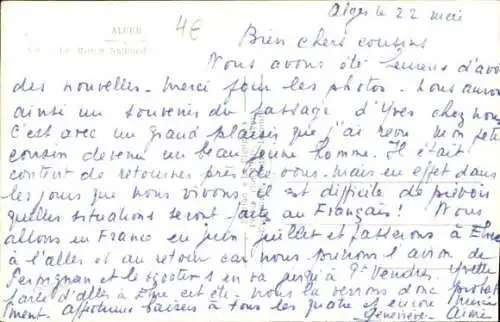 ALGER
4€
Alger le 22 mai
Bien chers cousins
Nous avons été heureux d'avoir
des nouvelles - merci pour les photos. nous aurons
ainsi un souvenir du passage d'Yves chez nous
C'est avec un grand plaisir que j'ai revu mon petit
cousin devenu un beau jeune homme. Il était
content de retourner près de vous. mais en effet dans
les jours que nous vivons, il est difficile de prévoir
quelles situations seront faites au Français! Nous
allons en France en juin juillet et passerons à Elne
à l'aller et au retour car nous prenons l'avion de
Perpignan et le scooter s en va jusqu'à Pt Vendres. Yvette
parle d'aller à Elne cet été - nous la verrons donc probable
ment. affectueux baisers à tous les quatre et encore merci
Geneviève - Aimé